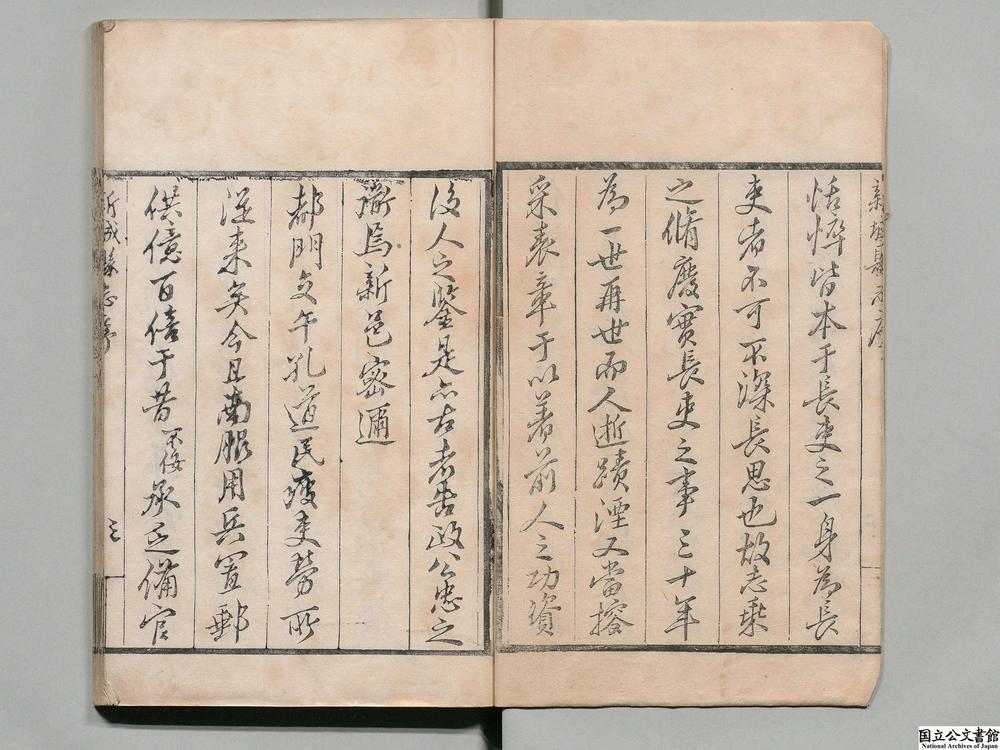 新城縣志序
恬悴皆本于長吏之一身為長
吏者不可不深長思也故志乗
之脩廢實長吏之事三十年
為一世再世而人逝蹟湮又當搜
采表章于以著前人之功資
後人之鑒是亦古者告政公忠之
衛焉新邑密邇
都門交午孔道民瘦吏勞所
從来矣今且南服用兵置郵
供億百倍于昔不佞承乏備官
新城縣志序
三
国立公文書館
National Archives of Japan